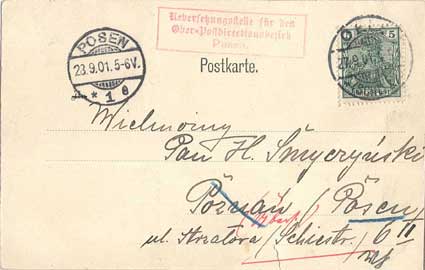 POSEN
23.9.01.5-6V.
* 1 e
Uebersetzungsstelle für den
Ober-Postdirectionsbezirk
Posen.
5
Postkarte.
Wielmożny
Pan H. Śmyczyński
Poznań / Posen /
ul. Strzałowa / Schiestr. / 6 II